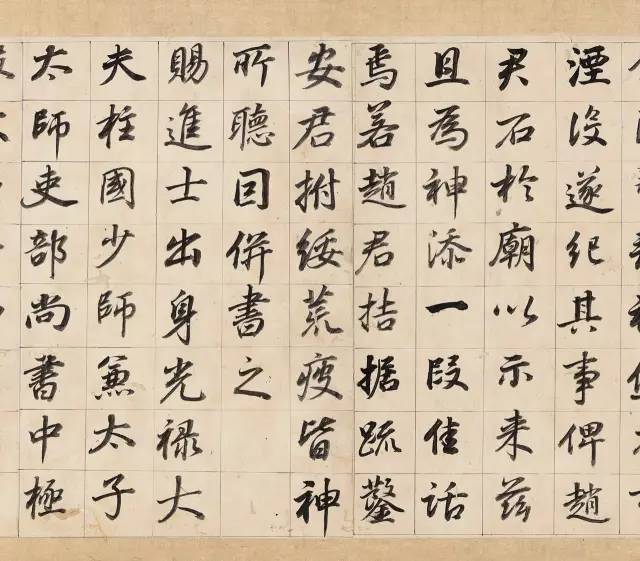 湮沒遂紀其事俾趙
君石於廟以示来茲
且為神添一段佳話
焉若趙君拮据疏鑿
安君拊綏荒疫皆神
所聽回併書之
賜進士出身光禄大
夫柱國少師兼太子
太師吏部尚書中極